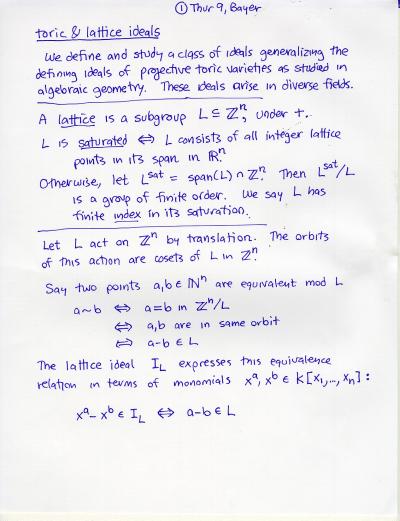 ① Thur 9, Bayer
toric & lattice ideals
We define and study a class of ideals generalizing the
defining ideals of projective toric varieties as studied in
algebraic geometry. These ideals arise in diverse fields.
A lattice is a subgroup L ⊆ ℤⁿ, under +.
L is saturated ⇔ L consists of all integer lattice
points in its span in ℝⁿ.
Otherwise, let L^sat = span(L) ∩ ℤⁿ. Then L^sat/L
is a group of finite order. We say L has
finite index in its saturation.
Let L act on ℤⁿ by translation. The orbits
of this action are cosets of L in ℤⁿ.
Say two points a,b ∈ ℕⁿ are equivalent mod L
a~b ⇔ a=b in ℤⁿ/L
⇔ a,b are in same orbit
⇔ a-b ∈ L
The lattice ideal I_L expresses this equivalence
relation in terms of monomials x^a, x^b ∈ k[x₁,...,xₙ]:
x^a - x^b ∈ I_L ⇔ a-b ∈ L